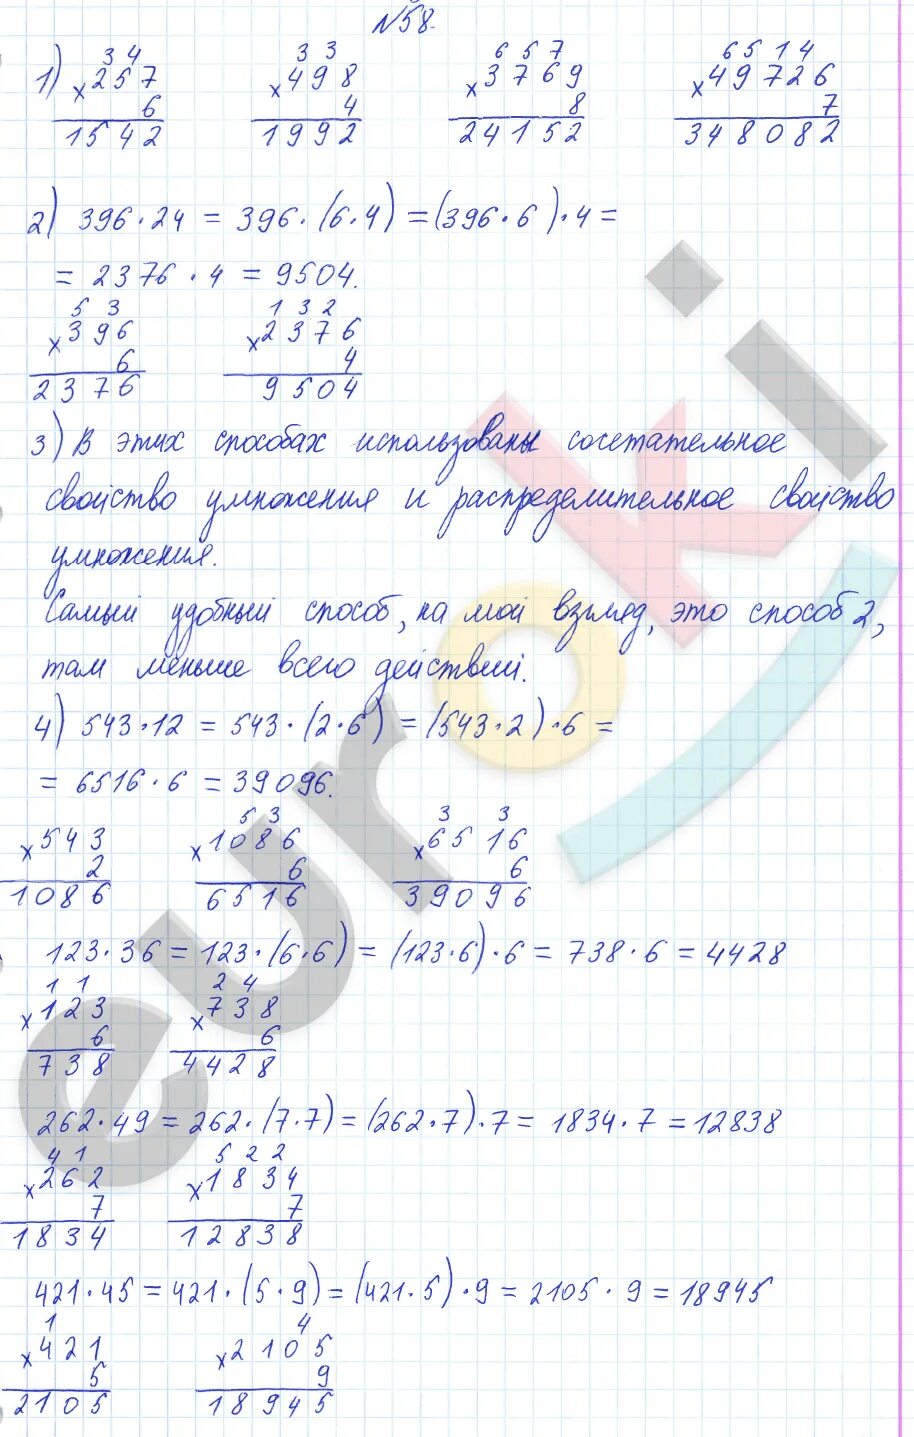 №58.
1)
3 4
×257
6
1542
3 3
×498
4
1992
6 5 7
×3769
8
24152
6 5 1 4
×49726
7
348082
2) 396·24 = 396·(6·4) = (396·6)·4 =
= 2376·4 = 9504.
5 3
×396
6
2376
1 3 2
×2376
4
9504
3) В этих способах использованы сочетательное
свойство умножения и распределительное свойство
умножения.
Самый удобный способ, на мой взгляд, это способ 2,
там меньше всего действий.
4) 543·12 = 543·(2·6) = (543·2)·6 =
= 6516·6 = 39096.
×543
2
1086
5 3
×1086
6
6516
3 3
×6516
6
39096
123·36 = 123·(6·6) = (123·6)·6 = 738·6 = 4428
1 1
×123
6
738
2 4
×738
6
4428
262·49 = 262·(7·7) = (262·7)·7 = 1834·7 = 12838
4 1
×262
7
1834
5 2 2
×1834
7
12838
421·45 = 421·(5·9) = (421·5)·9 = 2105·9 = 18945
1
×421
5
2105
4
×2105
9
18945
euroki